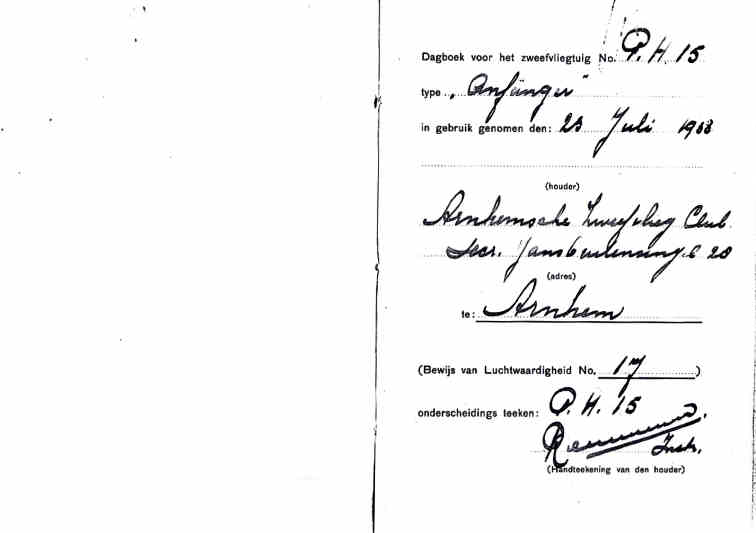 Dagboek voor het zweefvliegtuig No. P.H. 15
type „Anfänger"
in gebruik genomen den: 23 Juli 1938
(houder)
Arnhemsche Zweefvlieg Club
Secr. Jansbuitensingel 20
(adres)
te: Arnhem
(Bewijs van Luchtwaardigheid No. 17)
onderscheidings teeken: P.H. 15
Instr.
(Handteekening van den houder)